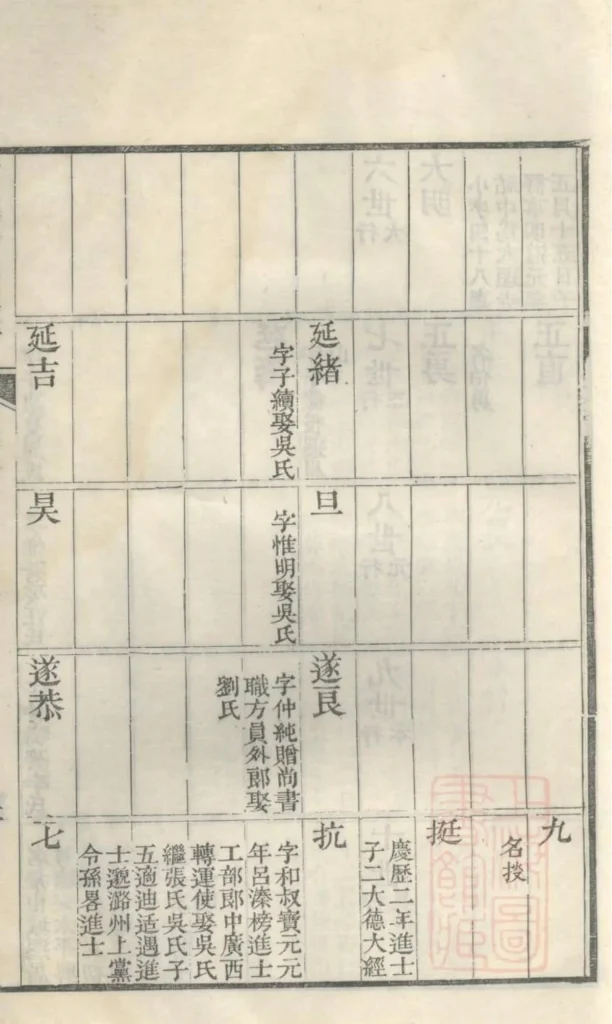 延緒
字子續娶吳氏
延吉
旦
字惟明娶吳氏
昊
遂良
字仲純贈尚書
職方員外郎娶
劉氏
遂恭
九
名掞
挺
慶歷二年進士
子二大德大經
抗
字和叔寶元元
年呂溱榜進士
工部郎中廣西
轉運使娶吳氏
繼張氏吳氏子
五適迪适遇進
士邈潞州上黨
令孫畧進士
七
上海圖
書館藏